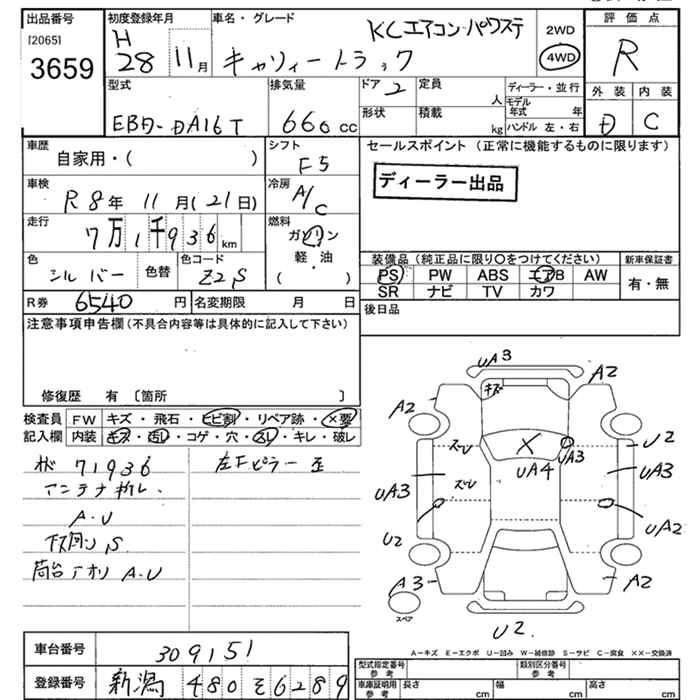 出品番号
[2065]
3659
初度登録年月
H
28
11月
車名・グレード
KCエアコン・パワステ
キャリィートラック
2WD
4WD
評価点
R
外装
内装
D
C
型式
EBD-DA16T
排気量
660 cc
ドア 2
定員
人
形状
積載
kg
ディーラー・並行
モデル年式 年
ハンドル 左・右
車歴
自家用・( )
シフト
F5
セールスポイント (正常に機能するものに限ります)
ディーラー出品
車検
R8年 11月(21日)
冷房
A/C
走行
7万1千936km
燃料
ガソリン
軽・油
( )
色
シルバー
色替
色コード
Z2S
装備品 (純正品に限り○をつけてください)
新車保証書
PS PW ABS エアB AW
SR ナビ TV カワ
有・無
R券 6540 円
名変期限 月 日
後日品
注意事項申告欄 (不具合内容等は具体的に記入して下さい)
修復歴 有 〔箇所 〕
検査員
記入欄
FW キズ・飛石・ヒビ割・リペア跡・×要
内装 キズ・汚レ・コゲ・穴・スレ・キレ・破レ
71936
アンテナ折レ.
A・U
下回り S
荷台アオリ A.U
左Fピラー
UA3
キズ
A2
A2
U2
ズレ
ズレ
X
UA3
UA4
UA3
UA3
UA2
U2
A3
A2
スペア
U2.
A－キズ E－エクボ U－凹み W－補修跡 S－サビ C－腐食 ××－交換済
車台番号
309151
登録番号
新潟 480 そ 6289
型式指定番号
参考
類別区分番号
参考
車庫証明用
参考
長さ cm
幅 cm
高さ cm